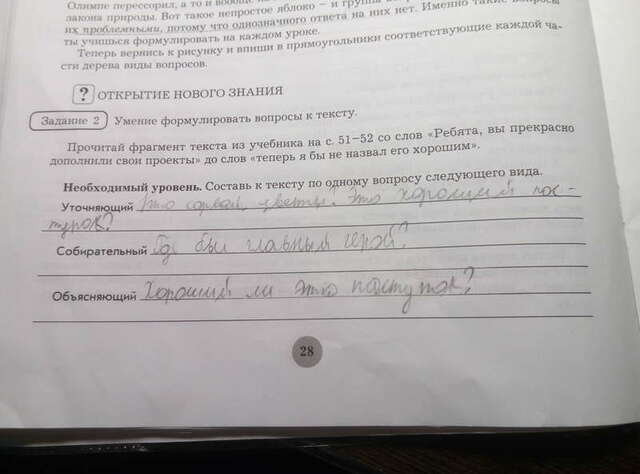 Олимпе перессорил, а то и вообще
закона природы. Вот такое непростое яблоко – и группа
их проблемными, потому что однозначного ответа на них нет. Именно такие вопросы
ты учишься формулировать на каждом уроке.
Теперь вернись к рисунку и впиши в прямоугольники соответствующие каждой ча-
сти дерева виды вопросов.
? ОТКРЫТИЕ НОВОГО ЗНАНИЯ
Задание 2 Умение формулировать вопросы к тексту.
Прочитай фрагмент текста из учебника на с. 51–52 со слов «Ребята, вы прекрасно
дополнили свои проекты» до слов «теперь я бы не назвал его хорошим».
Необходимый уровень. Составь к тексту по одному вопросу следующего вида.
Уточняющий сорвал цветы. Это хороший пос-
тупок?
Собирательный Где был главный герой?
Объясняющий Хороший ли это поступок?
28